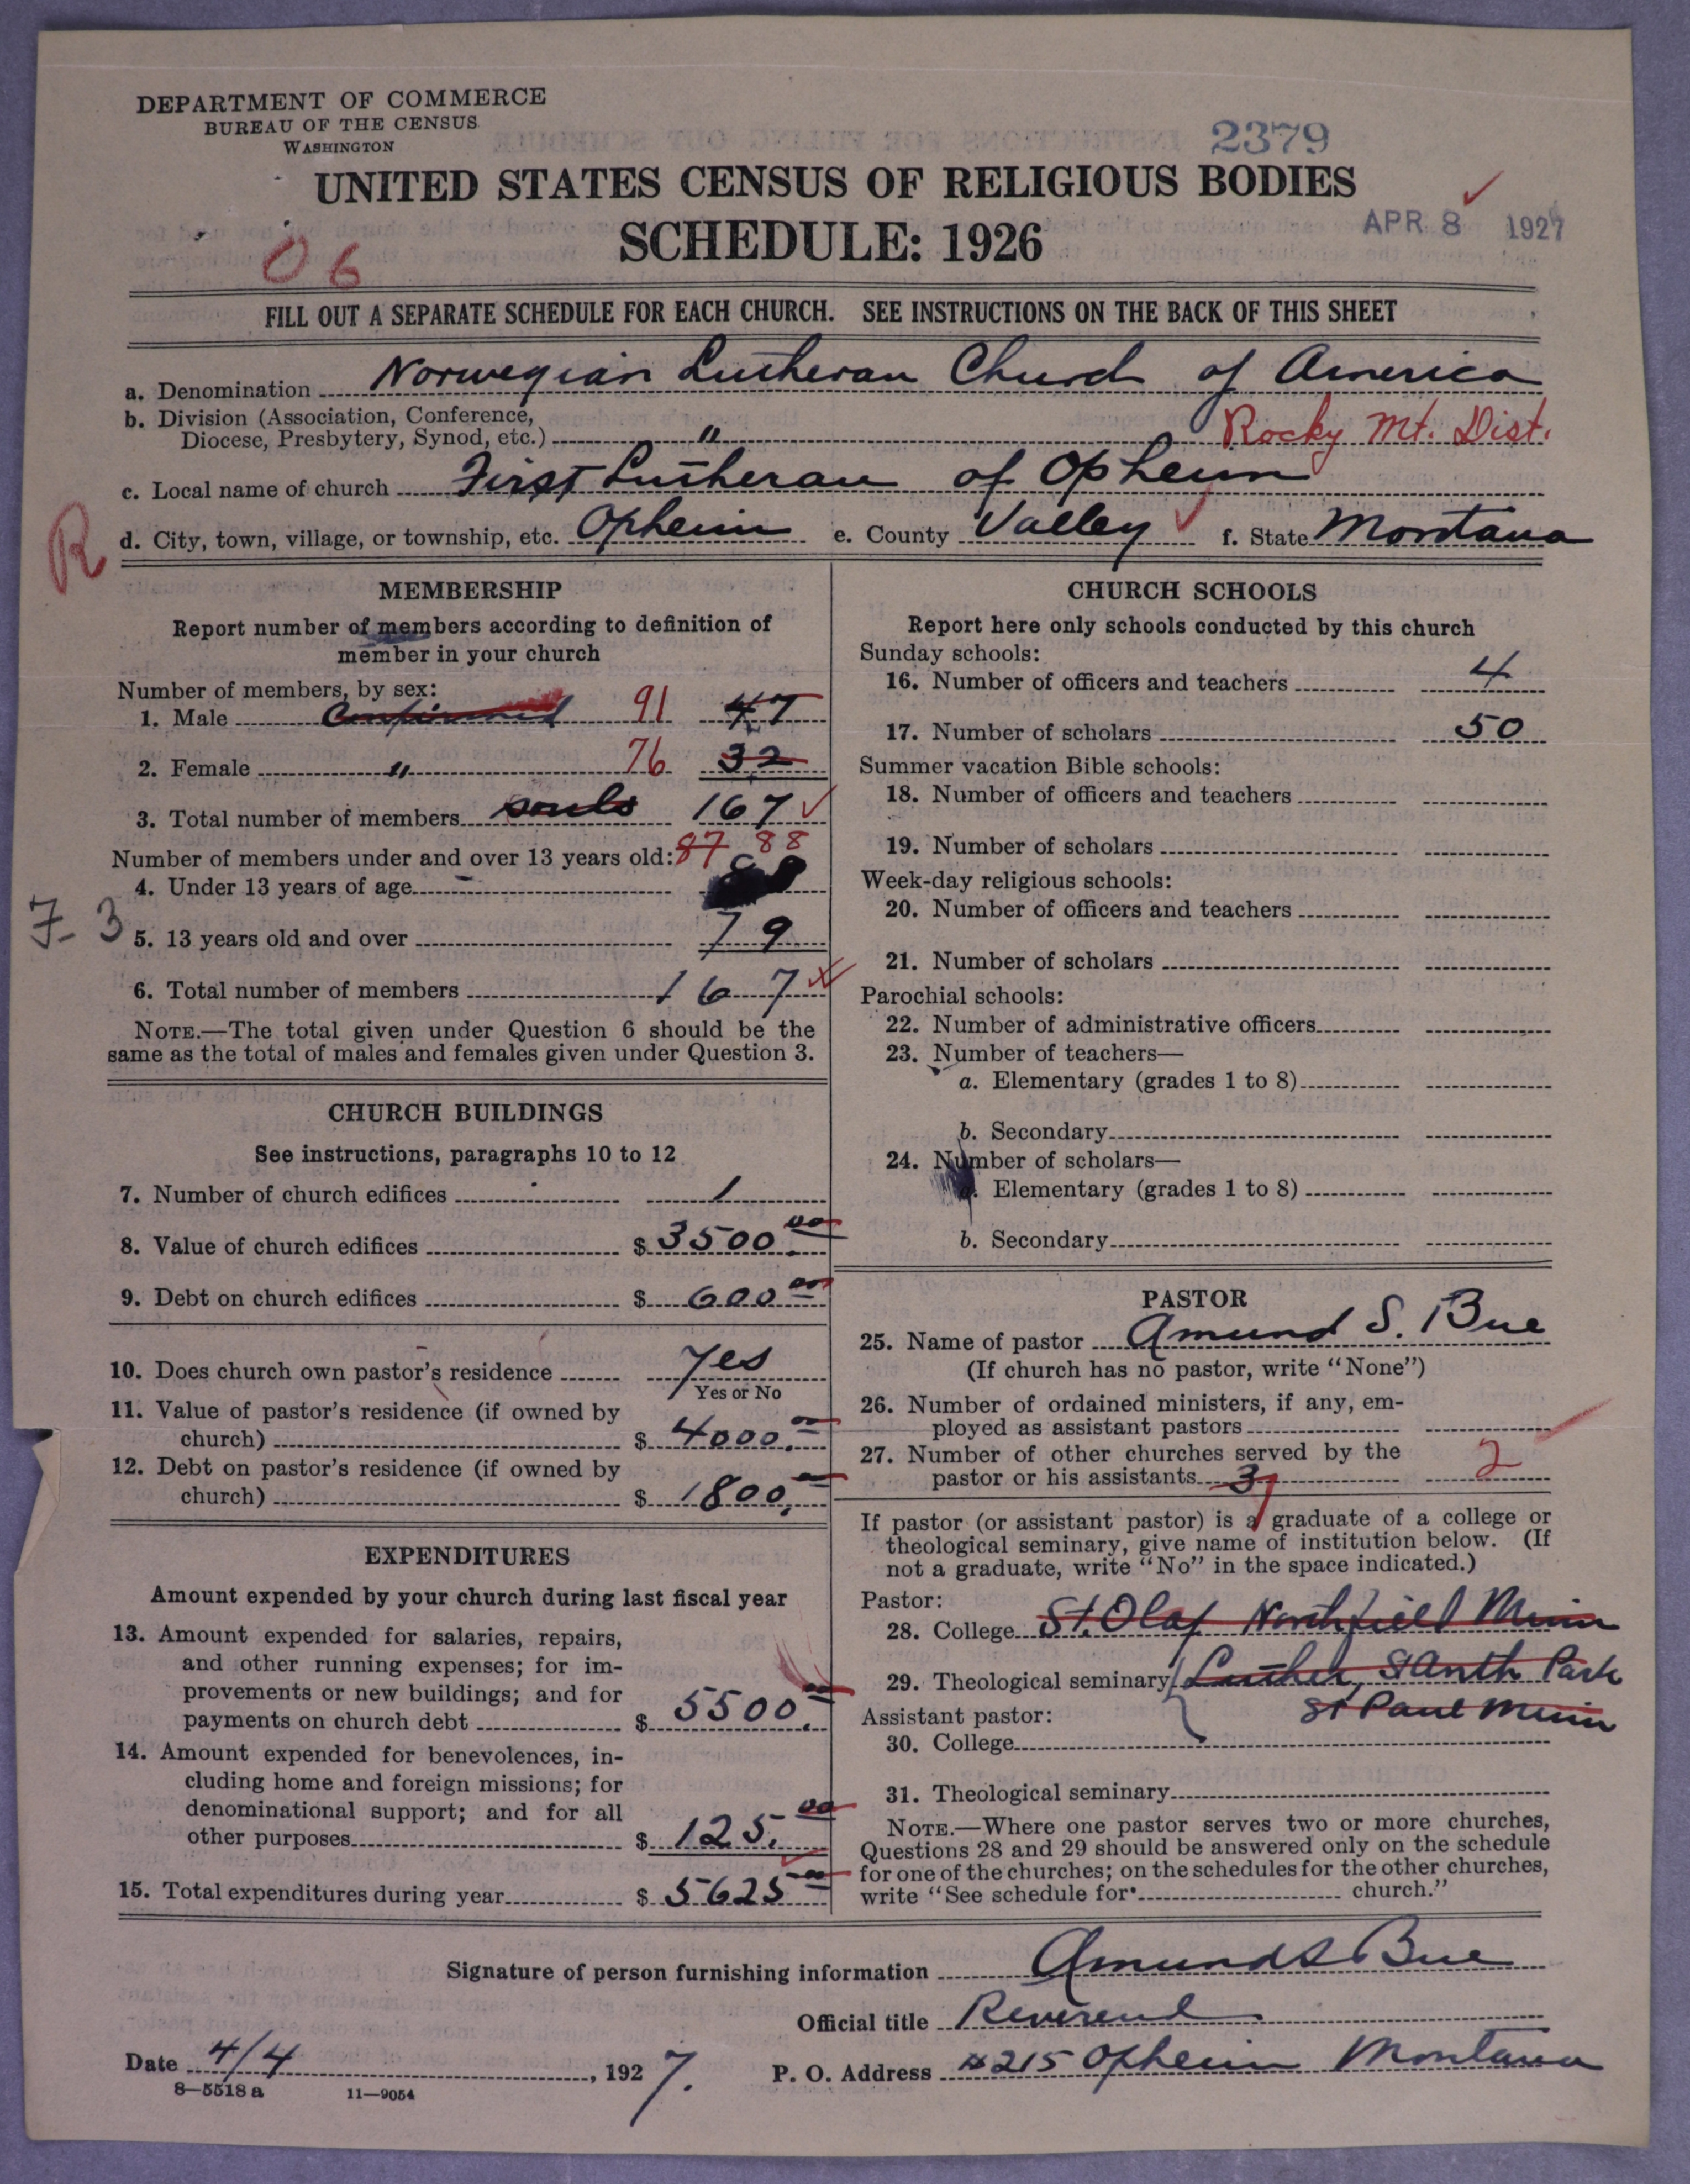 DEPARTMENT OF COMMERCE
BUREAU OF THE CENSUS
WASHINGTON
2379
UNITED STATES CENSUS OF RELIGIOUS BODIES
SCHEDULE: 1926
APR 8 1927
06
FILL OUT A SEPARATE SCHEDULE FOR EACH CHURCH. SEE INSTRUCTIONS ON THE BACK OF THIS SHEET
a. Denomination Norwegian Lutheran Church of America
b. Division (Association, Conference,
Diocese, Presbytery, Synod, etc.) " Rocky Mt. Dist.
c. Local name of church First Lutheran of Opheim
R
d. City, town, village, or township, etc. Opheim e. County Valley f. State Montana
MEMBERSHIP
Report number of members according to definition of
member in your church
Number of members, by sex:
1. Male Confirmed 91 47
2. Female " 76 32
3. Total number of members souls 167
Number of members under and over 13 years old: 87 88
4. Under 13 years of age
7-3
5. 13 years old and over 79
6. Total number of members 167
NOTE.—The total given under Question 6 should be the
same as the total of males and females given under Question 3.
CHURCH BUILDINGS
See instructions, paragraphs 10 to 12
7. Number of church edifices 1
8. Value of church edifices $ 3500.00
9. Debt on church edifices $ 600 00
10. Does church own pastor's residence Yes
Yes or No
11. Value of pastor's residence (if owned by
church) $ 4000.00
12. Debt on pastor's residence (if owned by
church) $ 1800.
EXPENDITURES
Amount expended by your church during last fiscal year
13. Amount expended for salaries, repairs,
and other running expenses; for im-
provements or new buildings; and for
payments on church debt $ 5500.00
14. Amount expended for benevolences, in-
cluding home and foreign missions; for
denominational support; and for all
other purposes $ 125.00
15. Total expenditures during year $ 5625 00
CHURCH SCHOOLS
Report here only schools conducted by this church
Sunday schools:
16. Number of officers and teachers 4
17. Number of scholars 50
Summer vacation Bible schools:
18. Number of officers and teachers
19. Number of scholars
Week-day religious schools:
20. Number of officers and teachers
21. Number of scholars
Parochial schools:
22. Number of administrative officers
23. Number of teachers—
a. Elementary (grades 1 to 8)
b. Secondary
24. Number of scholars—
Elementary (grades 1 to 8)
b. Secondary
PASTOR
25. Name of pastor Amund S. Bue
(If church has no pastor, write "None")
26. Number of ordained ministers, if any, em-
ployed as assistant pastors
27. Number of other churches served by the
pastor or his assistants 3 2
If pastor (or assistant pastor) is a graduate of a college or
theological seminary, give name of institution below. (If
not a graduate, write "No" in the space indicated.)
Pastor:
28. College St. Olaf Northfield Minn
29. Theological seminary Luther, St Anth Park
St Paul Minn
Assistant pastor:
30. College
31. Theological seminary
NOTE.—Where one pastor serves two or more churches,
Questions 28 and 29 should be answered only on the schedule
for one of the churches; on the schedules for the other churches,
write "See schedule for church."
Signature of person furnishing information Amund S Bue
Official title Reverend
Date 4/4, 1927. P. O. Address #215 Opheim Montana
8—5518 a 11—9054